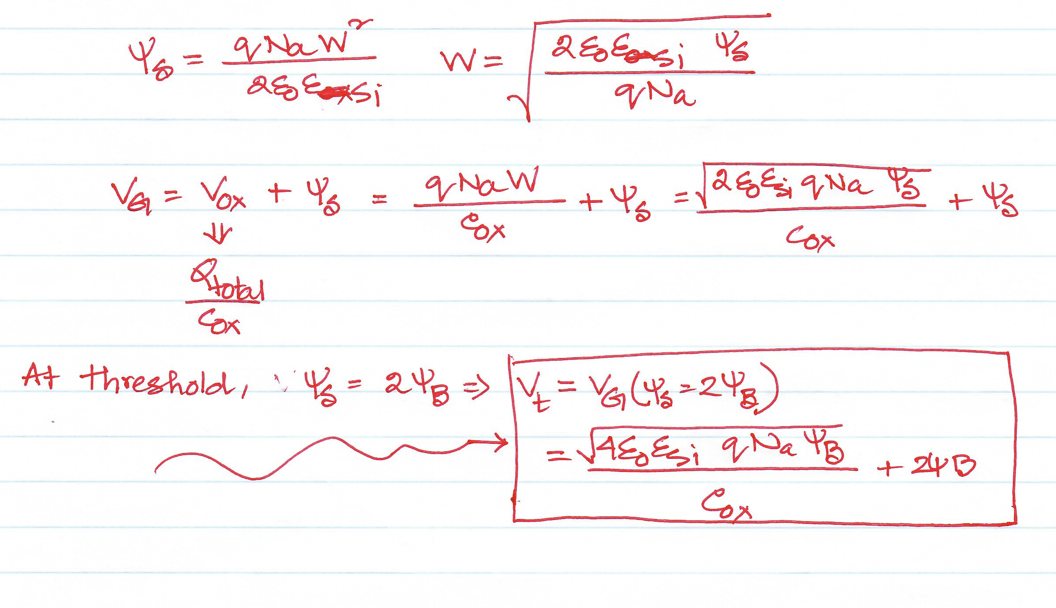 ψs = qNaW² / 2ε₀εsi    W = √(2ε₀εsi ψs / qNa)
VG = Vox + ψs = qNaW / Cox + ψs = √(2ε₀εsi qNa ψs) / Cox + ψs
⇓
Qtotal / Cox
At threshold, ψs = 2ψB ⇒ Vt = VG(ψs = 2ψB)
= √(4ε₀εsi qNa ψB) / Cox + 2ψB